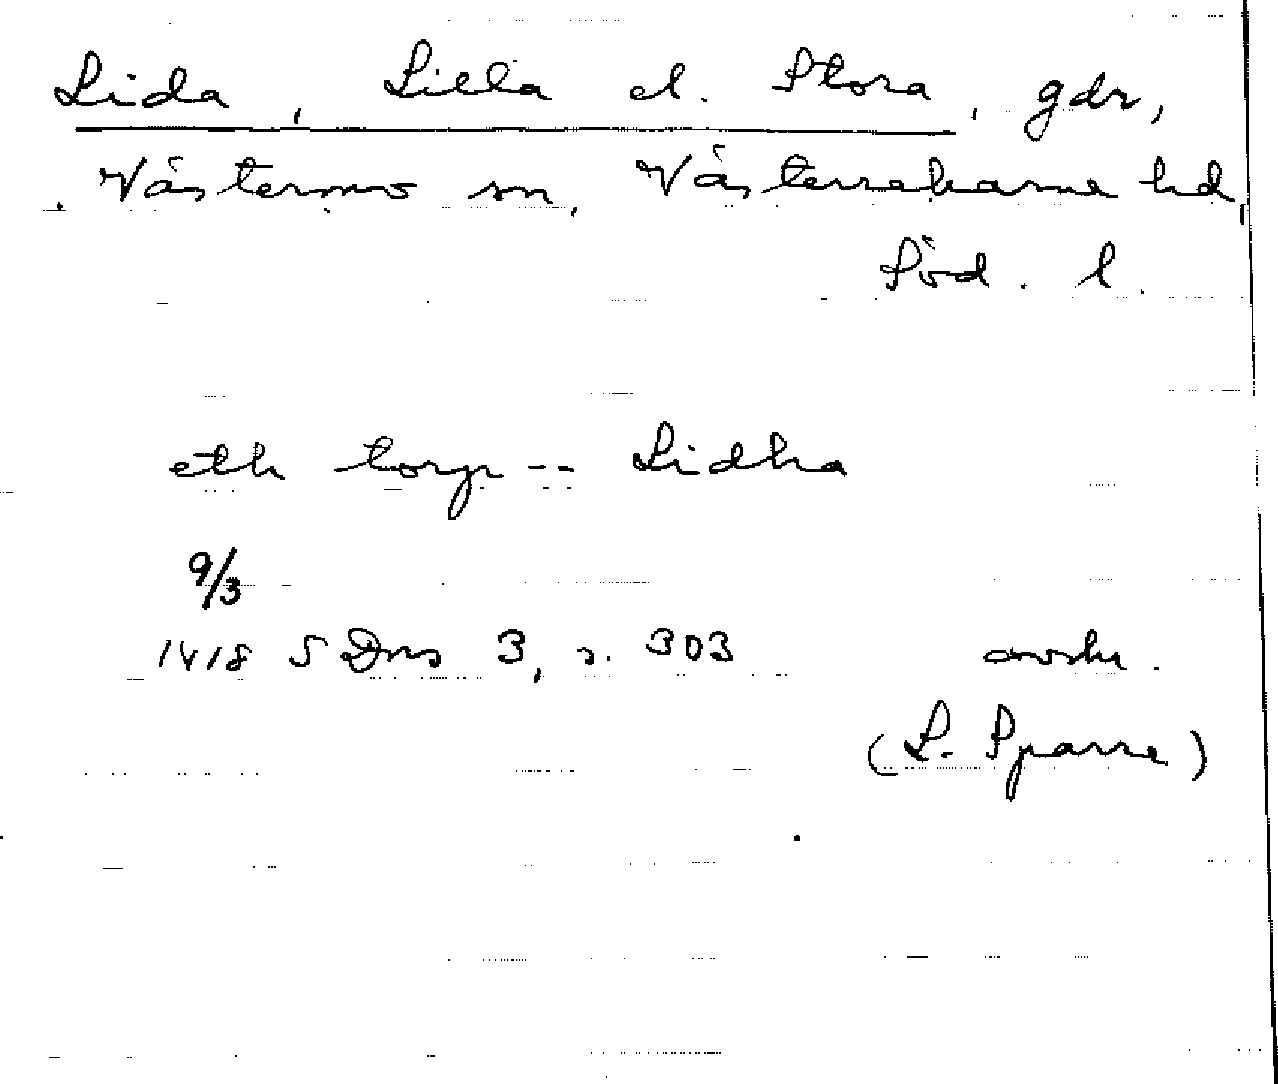 Lida, Lilla el. Stora, gdr,
Västermo sn, Västerrekarne hd,
Söd. l.
eth torp -- Lidha
9/3
1418 SDns 3, s. 303 avskr.
(L. Sparre)